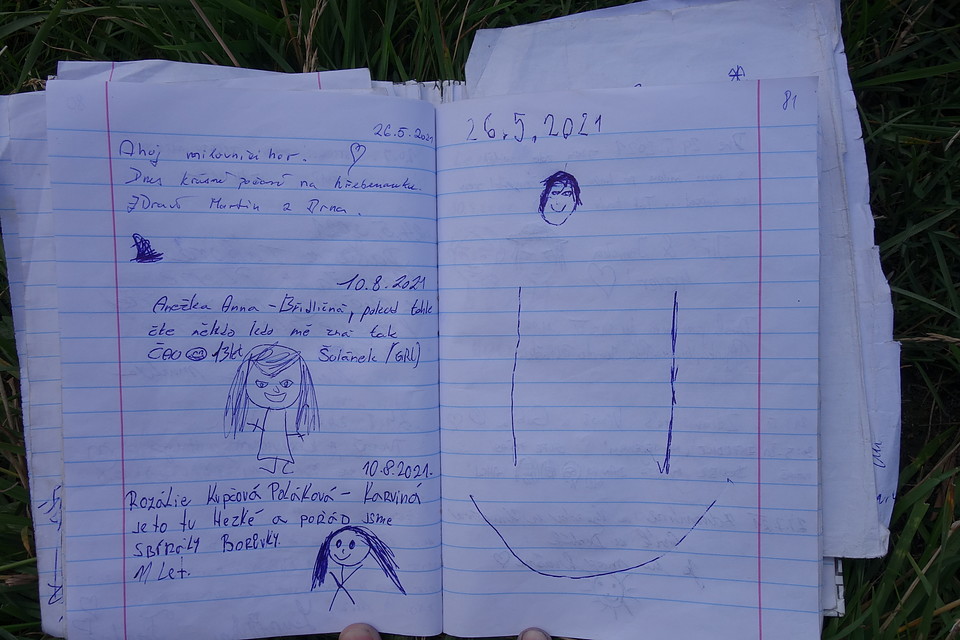 26.5.2021
Ahoj milovníci hor.
Dnes krásné počasí na hřebenovku.
Zdraví Martin z Brna.
10.8.2021
Anežka Anna - Břidličná, pokud tohle
čte někdo kdo mě zná tak
ČAO 13let Šulánek (GRL)
10.8.2021.
Rozálie Kupčová Poláková - Karviná
je to tu Hezké a pořád jsme
SBÍRALY BORŮVKY.
11 Let.
81
26.5.2021